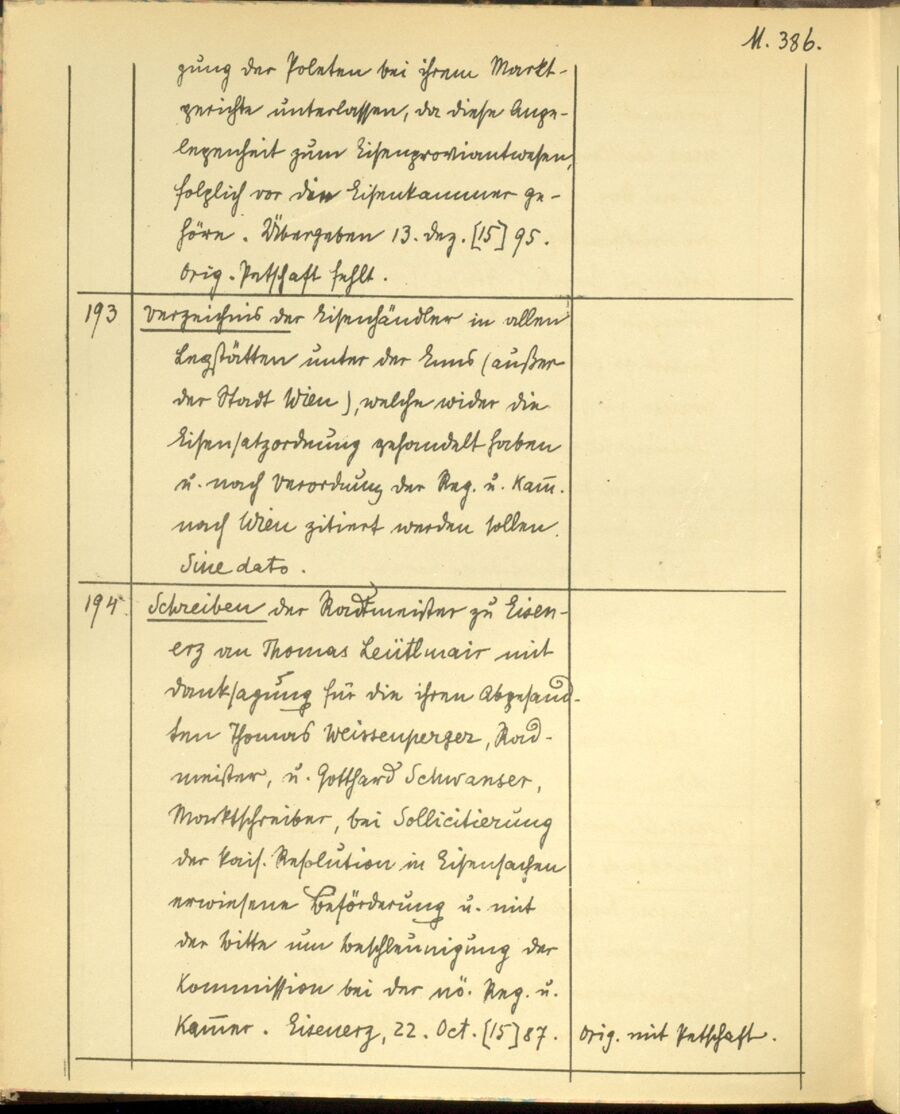 M. 386.
gung der Poleten bei ihrem Markt-
gerichte unterlassen, da diese Ange-
legenheit zum Eisenproviantwesen,
folglich vor die Eisenkammer ge-
höre. Übergeben 13. Dez. [15]95.
Orig. Petschaft fehlt.
193 Verzeichnis der Eisenhändler in allen
Legstätten unter der Enns (außer
der Stadt Wien), welche wider die
Eisensatzordnung gehandelt haben
u. nach Verordnung der Reg. u. Kam̅.
nach Wien zitiert werden sollen.
Sine dato.
194. Schreiben der Radmeister zu Eisen-
erz an Thomas Leütlmair mit
Danksagung für die ihren Abgesand-
ten Thomas Weissenperger, Rad-
meister, u. Gotthard Schwanser,
Marktschreiber, bei Sollicitierung
der kais. Resolution in Eisensachen
erwiesene Beförderung u. mit
der Bitte um Beschleunigung der
Kommission bei der nö. Reg. u.
Kam̅er. Eisenerz, 22. Oct. [15]87. Orig. mit Petschaft.